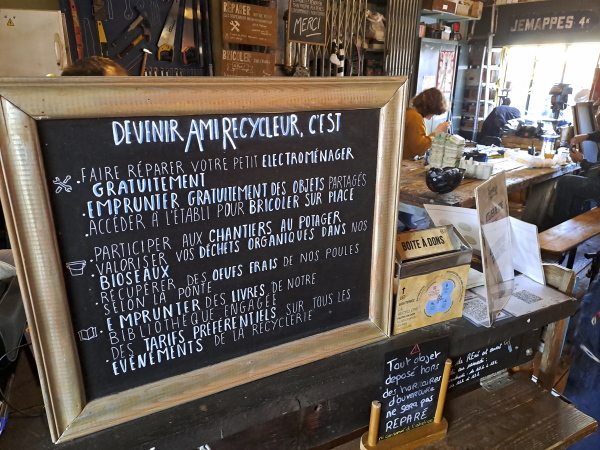 RÉPARER
BRICOLER
MERCI
JEMAPPES 4
DEVENIR AMI RECYCLEUR, C'EST
. FAIRE RÉPARER VOTRE PETIT ELECTROMÉNAGER
GRATUITEMENT
. EMPRUNTER GRATUITEMENT DES OBJETS PARTAGÉS
. ACCÉDER À L'ÉTABLI POUR BRICOLER SUR PLACE
. PARTICIPER AUX CHANTIERS AU POTAGER
. VALORISER VOS DÉCHETS ORGANIQUES DANS NOS
BIOSEAUX
. RÉCUPÉRER DES OEUFS FRAIS DE NOS POULES
SELON LA PONTE
. EMPRUNTER DES LIVRES DE NOTRE
BIBLIOTHÈQUE ENGAGÉE
. DES TARIFS PRÉFÉRENTIELS SUR TOUS LES
EVÉNEMENTS DE LA RECYCLERIE
BOITE À DONS
Tout objet
déposé hors
des horaires
d'ouverture
ne sera pas
RÉPARÉ